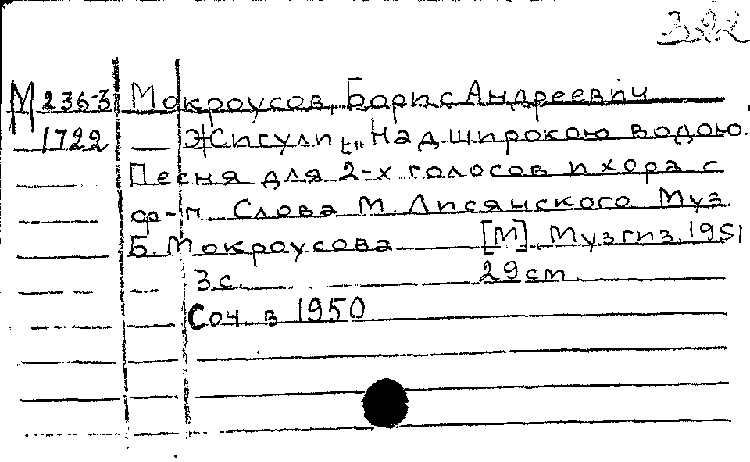 322
М 236-3 Мокроусов, Борис Андреевич
1722 Жигули ["Над широкою водою.
Песня для 2-х голосов и хора с
ф-п. Слова М. Лисянского Муз.
Б. Мокроусова [М] Музгиз, 1951
3 с. 29 см.
Соч. в 1950